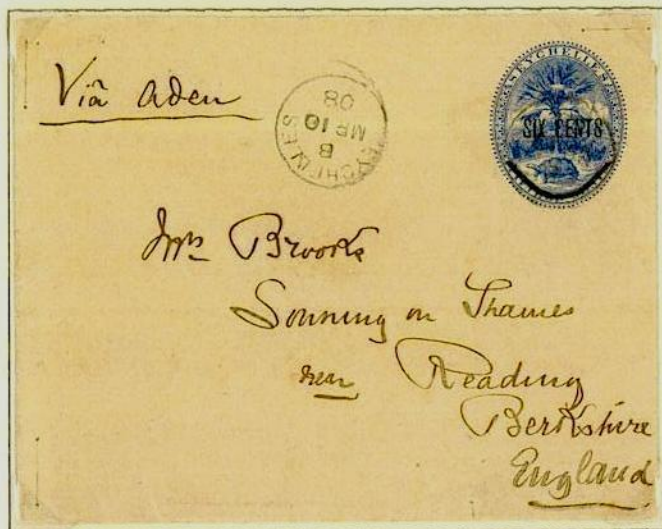 Via Aden
SEYCHELLES
B
MR 10
08
SEYCHELLES
SIX CENTS
Mrs Brooks
Sonning on Thames
near Reading
Berkshire
England